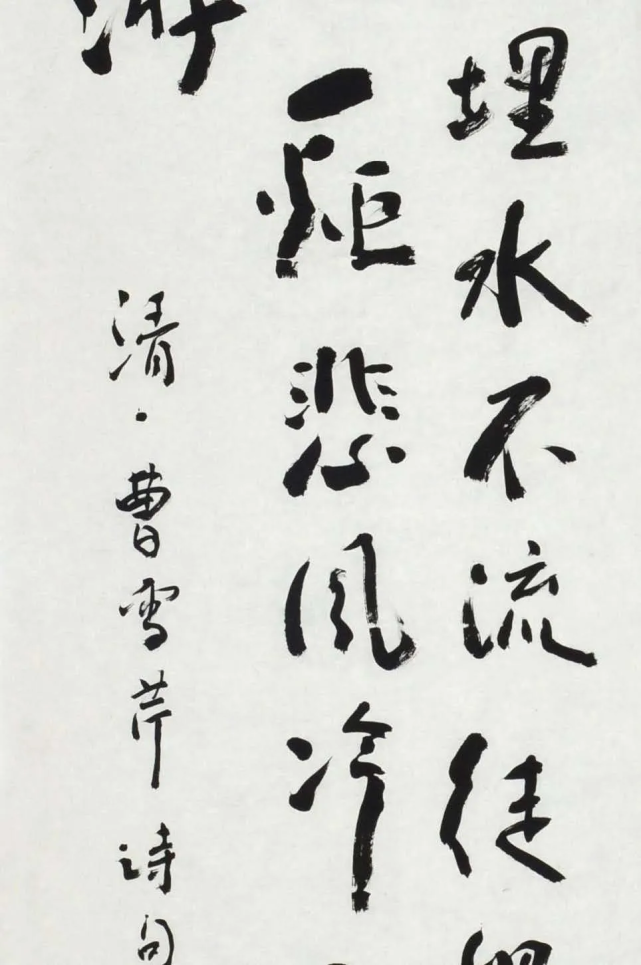 埋水不流徒
一炬悲风冷
游
清·曹雪芹诗句